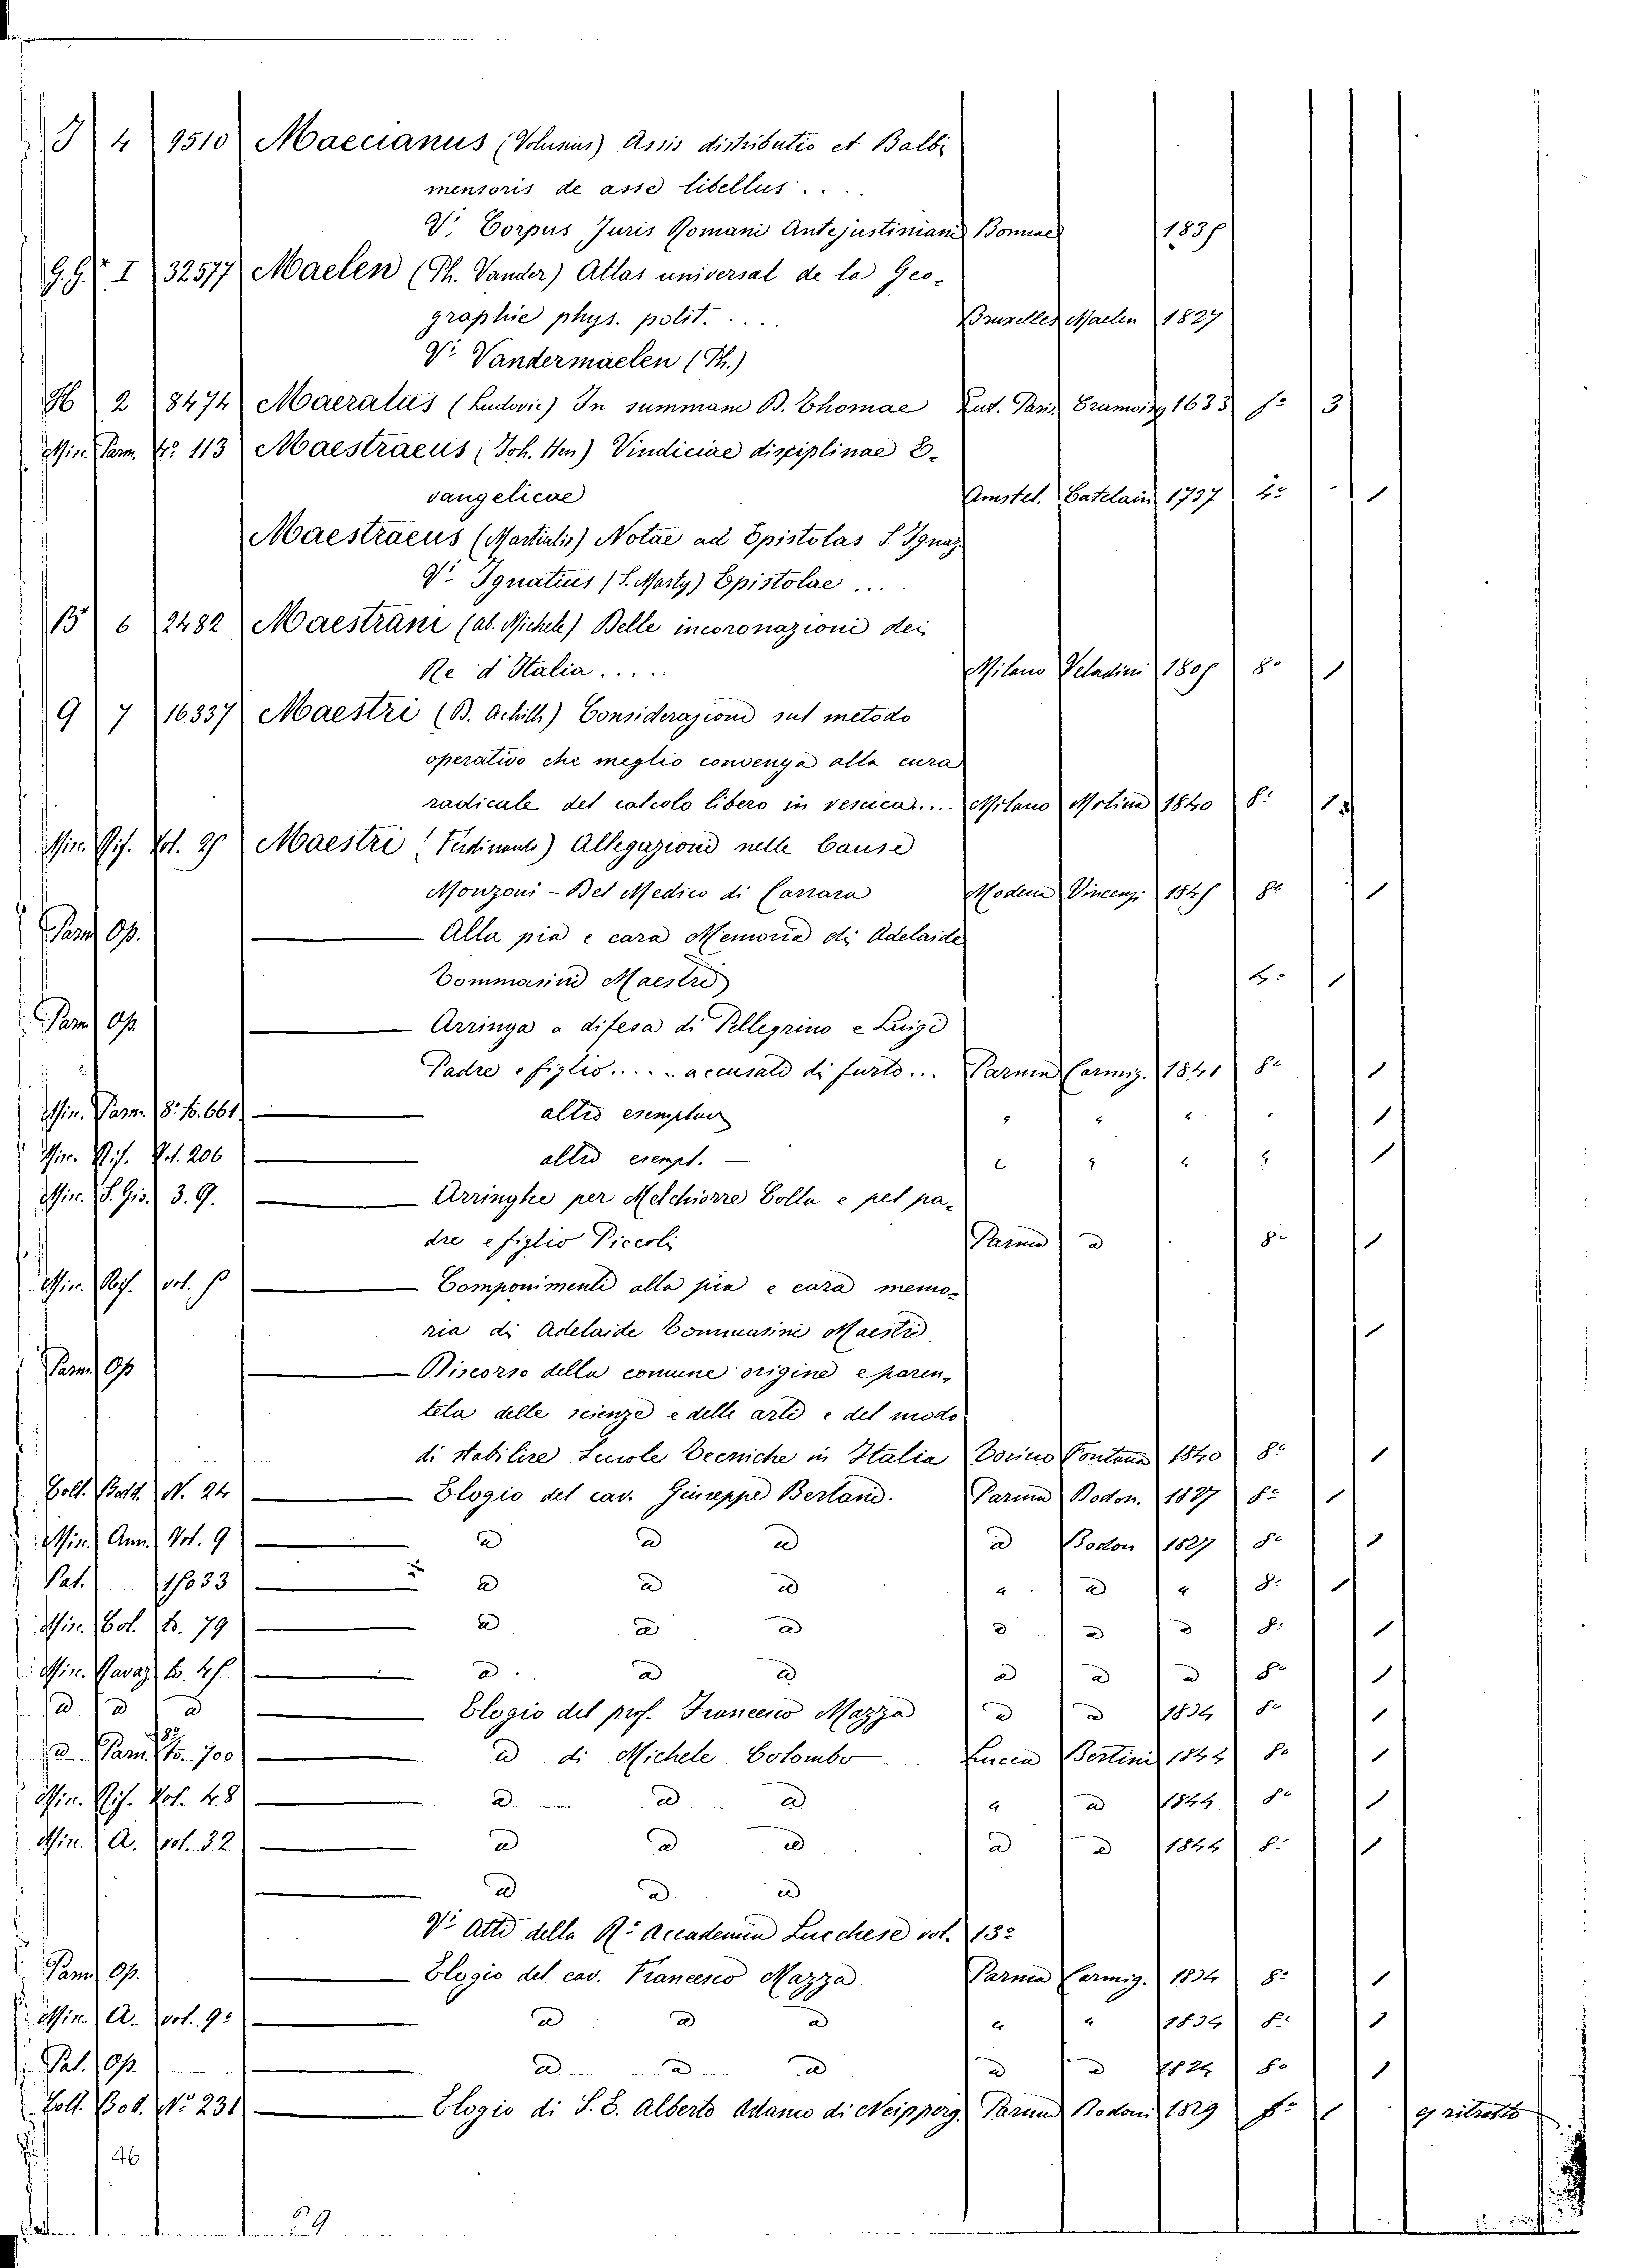 J 4 9510 Maecianus (Volusius) Assis distributio et Balbi
mensoris de asse libellus....
V. Corpus Juris Romani Antejustiniani Bonnae 183
G.G. I 32577 Maelen (Ph. Vander) Atlas universal de la Geo-
graphie phys. polit..... Bruxelles Maelen 1827
V. Vandermaelen (Ph.)
H 2 8474 Maeratus (Ludovic) In summam B. Thomae Lut. Paris Cramoisy 1633 f.° 3
Min. Parm. 4.° 113 Maestraeus (Joh. Hen) Vindiciae disciplinae E-
vangelicae Amstel. Catelain 1737 4.° 1
Maestraeus (Martialis) Notae ad Epistolas S Ignaz
V. Ignatius (S. Marty) Epistolae ...
B 6 2482 Maestrani (ab. Michele) Delle incoronazioni dei
Re d'Italia..... Milano Veladini 180 8.° 1
9 7 16337 Maestri (B. Achille) Considerazioni sul metodo
operativo che meglio convenga alla cura
radicale del calcolo libero in vescica.... Milano Molina 1840 8.° 1
Min. Rif. Vol. 2 Maestri (Ferdinando) Allegazioni nelle Cause
Monzoni - Del Medico di Carrara Modena Vincenzi 184 8.° 1
Parm. Op. — Alla pia e cara Memoria di Adelaide
Tommasini Maestri 4.° 1
Parm. Op. — Arringa a difesa di Pellegrino e Luigi
Padre e figlio..... accusati di furto... Parma Carmig. 1841 8.° 1
Min. Parm. 8.° t. 661 — altro esemplar " " " 1
Min. Rif. Vol. 206 — altro esempl. — " " " " 1
Min. S. Gio. 3. 9. — Arringhe per Melchiorre Colla e pel pa-
dre e figlio Piccoli Parma a 8.° 1
Min. Rif. vol. — Componimenti alla pia e cara memo-
ria di Adelaide Tommasini Maestri 1
Parm. Op — Discorso della comune origine e paren-
tela delle scienze e delle arti e del modo
di stabilire Scuole Tecniche in Italia Torino Fontana 1840 8.° 1
Coll. Bod. N. 24 — Elogio del cav. Giuseppe Bertani. Parma Bodon. 1827 8.° 1
Min. Ann. Vol. 9 — a a a a Bodon 1827 8.° 1
Pat. 033 — a a a " a " 8.° 1
Min. Col. t. 79 — a a a a a a 8.° 1
Min. Pavaz t. 4 — a a a a a a 8.° 1
a a a — Elogio del prof. Francesco Mazza a a 1834 8.° 1
a Parm. t. 700 — a di Michele Colombo — Lucca Bertini 1844 8.° 1
Min. Rif. Vol. 48 — a a a " a 1844 8.° 1
Min. A. vol. 32 — a a a a a 1844 8.° 1
— a a a
V. Atti della R. Accademia Lucchese vol. 13.°
Parm. Op. — Elogio del cav. Francesco Mazza Parma Carmig. 1834 8.° 1
Min. A. vol. 9.° — a a a " " 1834 8.° 1
Pat. Op. — a a a a a 1824 8.° 1
Coll. Bod. N.° 231 — Elogio di S. E. Alberto Adamo di Neipperg. Parma Bodoni 1829 f.° 1 c ritratto
46
29